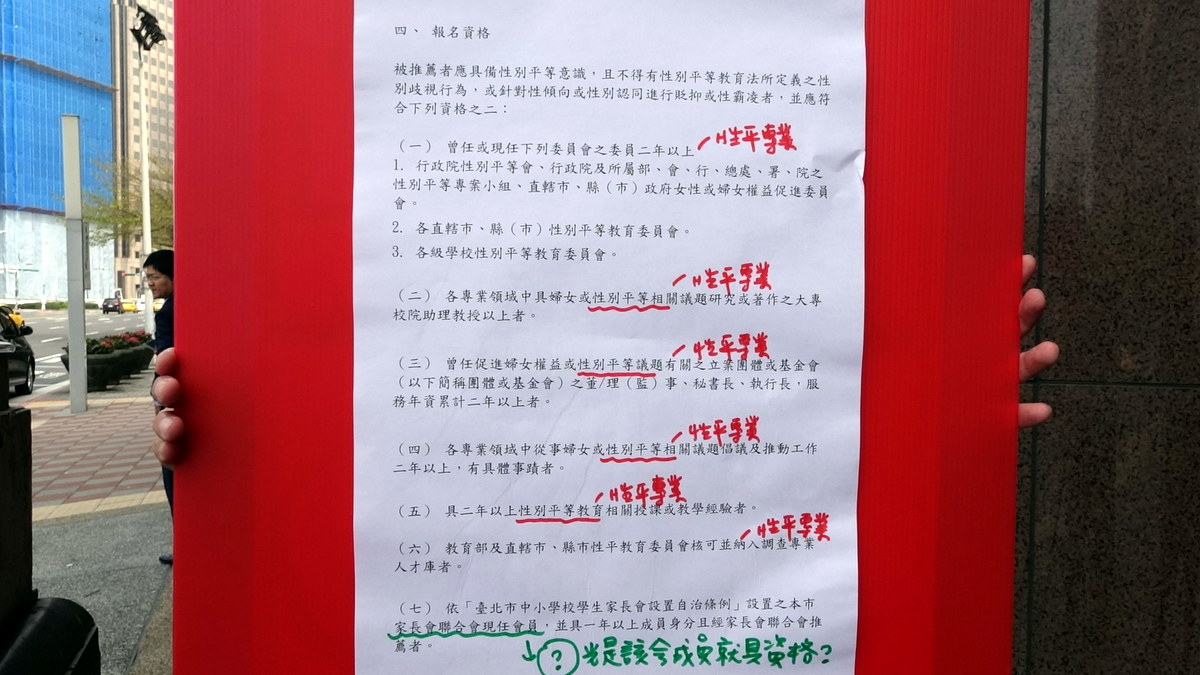 四、 報名資格
被推薦者應具備性別平等意識，且不得有性別平等教育法所定義之性
別歧視行為，或針對性傾向或性別認同進行貶抑或性霸凌者，並應符
合下列資格之二：
性平專業
（一） 曾任或現任下列委員會之委員二年以上
1. 行政院性別平等會、行政院及所屬部、會、行、總處、署、院之
性別平等專案小組、直轄市、縣（市）政府女性或婦女權益促進委員
會。
2. 各直轄市、縣（市）性別平等教育委員會。
3. 各級學校性別平等教育委員會。
性平專業
（二） 各專業領域中具婦女或性別平等相關議題研究或著作之大專
校院助理教授以上者。
性平專業
（三） 曾任促進婦女權益或性別平等議題有關之立案團體或基金會
（以下簡稱團體或基金會）之董/理（監）事、秘書長、執行長，服
務年資累計二年以上者。
性平專業
（四） 各專業領域中從事婦女或性別平等相關議題倡議及推動工作
二年以上，有具體事蹟者。
性平專業
（五） 具二年以上性別平等教育相關授課或教學經驗者。
性平專業
（六） 教育部及直轄市、縣市性平教育委員會核可並納入調查專業
人才庫者。
（七） 依「臺北市中小學校學生家長會設置自治條例」設置之本市
家長會聯合會現任會員，並具一年以上成員身分且經家長會聯合會推
薦者。
? 光是該會成員就具資格?